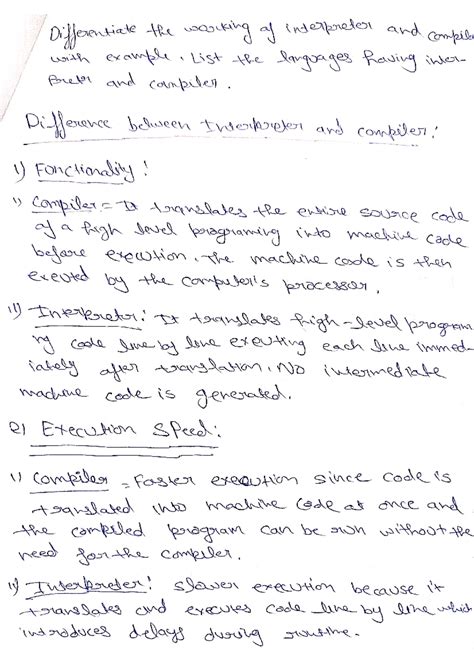 Differentiate the working of interpreter and compile
with example. List the languages having inter-
preter and compiler.
Difference between Interpreter and compiler:
1) Fonctionality:
i) Compiler = It translates the entire source code
of a high level programing into machine code
before execution. The machine code is then
exeuted by the computer's processor.
ii) Interpretor: It translates high-level program
ing code line by line exeuting each line immed-
iately after translation. No intermediate
machine code is generated.
2) Execution Speed:
i) Compiler = Faster execution since code is
translated into machine code at once and
the compiled program can be run without the
need for the compiler.
ii) Interpreter: slower execution because it
translates and executes code line by line which
introduces delays during runtime.